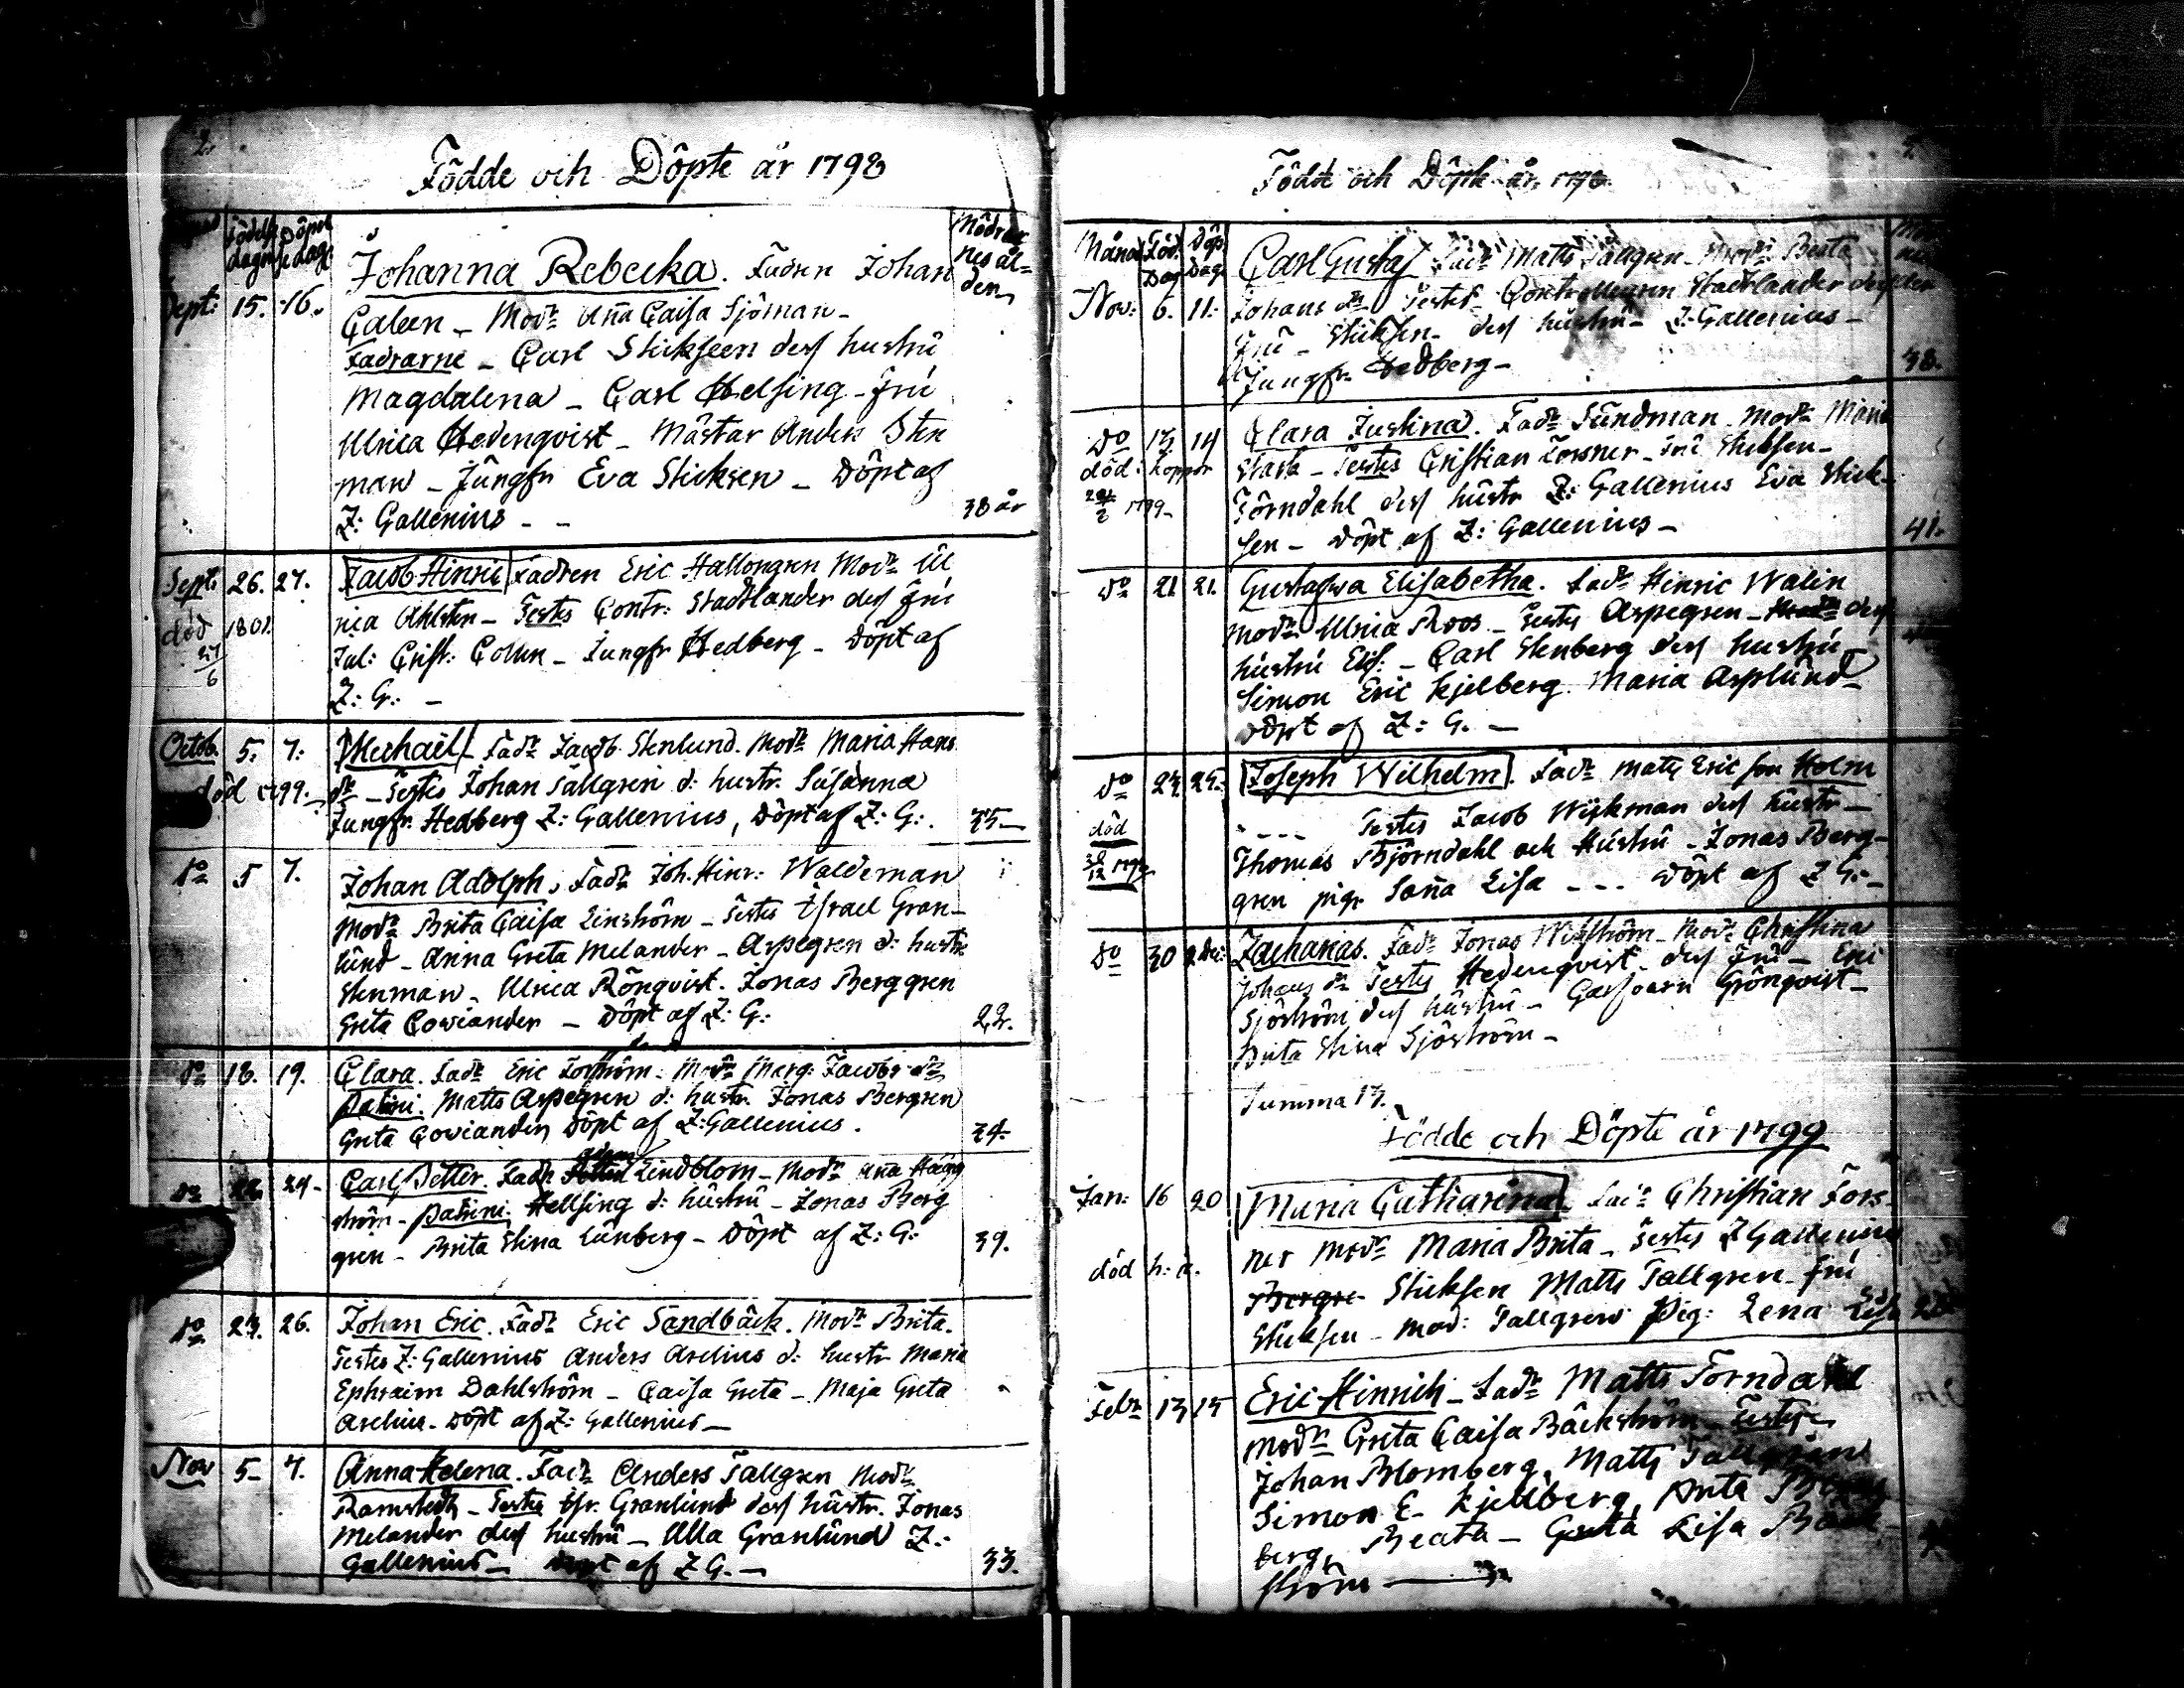 2.
Födde och Döpte år 1798
Månad Födelse dagen Döpelse dag. Mödrarnes ålder
Sept: 15. 16. Johanna Rebecka. Fadren Johan
Galeen – Modr Aña Caisa Sjöman –
Fadrarne – Carl Stichseen dess hustru
Magdalena – Carl Helsing – fru
Ulrica Hedenqvist – Mästar Anders Sten
man – Jungfr Eva Sticksen – Döpt af
Z: Gallenius – – 38 år
Sept: 26. 27. Jacob Hinric Fadren Eric Hallongren Modr Ul
död 1801 rica Ahlsten – Testes Contr: Stadtlander dess fru
27/6 Jul: Crist: Collin – Jungfr Hedberg – Döpt af
Z: G: –
Octob. 5. 7: Michaël Fadr Jacob Stenlund. Modr Maria Hans
död 1799. dr – Testes Johan Tallgren d: hustr. Susanna
Jungfr. Hedberg Z: Gallenius, Döpt af Z: G:. 35 –
Do 5 7. Johan Adolph, Fadr Joh. Hinr: Waldeman
Modr Brita Caisa Linström – Testes Israel Gran–
lund – Anna Greta Melander – Aspegren d: hustr
Stenman – Ulrica Rönqvist. Jonas Berggren
Greta Cowiander – Döpt af Z: G: 22.
Do 18. 19. Clara. Fadr Eric Forsström. Modr Marg: Jacobs dr
Patrini. Matts Aspegren d: hustr. Jonas Bergren
Greta Cowiander, Döpt af Z: Gallenius. 34.
Do 22. 24 – Carl Petter. Fadr Lindblom – Modr Aña Hägg
ström – Patrini. Hellsing d: hustru – Jonas Berg
gren – Brita Stina Lünberg – Döpt af Z: G: 39.
Do 23. 26. Johan Eric. Fadr Eric Sandbäck. Modr Brita.
Testes Z: Gallenius Anders Arelius d: hustr Maria
Ephraim Dahlström – Caisa Greta – Maja Greta
Arelius – Döpt af Z: Gallenius –
Nov 5 – 7. Anna Helena. Fadr Anders Tallgren Modr
Ramstedt – Testes Isr. Granlund dess hustr. Jonas
Melander dess hustru – Ulla Granlund Z:
Gallenius – Döpt af Z G. – 33.
Födde och Döpte år 1798
Månad Föd. Dag Döp. Dag
Nov: 6. 11: Carl Gustaf Fadr Matts Tallgren – Modr Beata
Johans dr Testes Controlleuren Stadtlander dess
fru – Sticksen – dess hustru – Z: Gallenius –
Jungfr. Hedberg – 38.
Do 13 14 Clara Justina. Fadr Sundman. Modr Maria
död: koppor Stark – Testes Cristian Forsner – fru Sticksen –
1799 – Törndahl dess hustr Z: Gallenius Eva Stick–
sen – Döpt af Z: Gallenius – 41.
Do 21 21. Gustafwa Elisabetha. Fadr Hinric Walin
Modr Ulrica Roos – Testes Aspegren – dess
hustru Elis: – Carl Stenberg dess hustru
Simon Eric Kjelberg. Maria Asplund –
Döpt af Z: G. –
Do 24. 25. Joseph Wilhelm. Fadr Matts Eric son Holm
död – – – – Testes Jacob Wijkman dess hustr –
30/12 1798 Thomas Björndahl och Hustru – Jonas Berg–
gren pigr Saña Lisa – – – Döpt af Z G: –
Do 30 2 Dec: Zacharias. Fadr Jonas Wikström – Modr Christina
Johans dr Testes Hedenqvist. dess fru – Eric
Sjöström dess hustru – Garfvarn Grönqvist –
Brita Stina Sjöström –
Summa 17.
Födde och Döpte år 1799
Jan: 16 20 Maria Catharina. Fadr Christian Fors–
ner Modr Maria Brita – Testes Z Gallenius
död h: a. Sticksen Matts Tallgren – fru
Sticksen – Mad: Tallgren Pig: Lena Lisa
Febr 13 15 Eric Hinrich – Fadr Matts Törndahl
Modr Greta Caisa Bäckström – Testes
Johan Blomberg, Matts Tallgren
Simon E. Kjellberg, Brita
berg, Beata – Greta Lisa Bäck
ström –